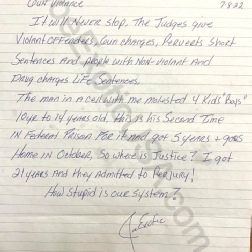 Gun Violance 7-8-22
It will Never stop. The Judges give
Violant Offenders, Gun charges, Perverts Short
Sentences And people with Non-Violent And
Drug charges Life Sentences.
The man in a cell with me molested 4 Kids "Boys"
10yr to 14 years old. this is his Second Time
in Federal Prison For it and got 5 years & goes
Home in October. So where is Justice? I got
21 years and they Admitted to Perjury!
How Stupid is our System?
Joe Exotic